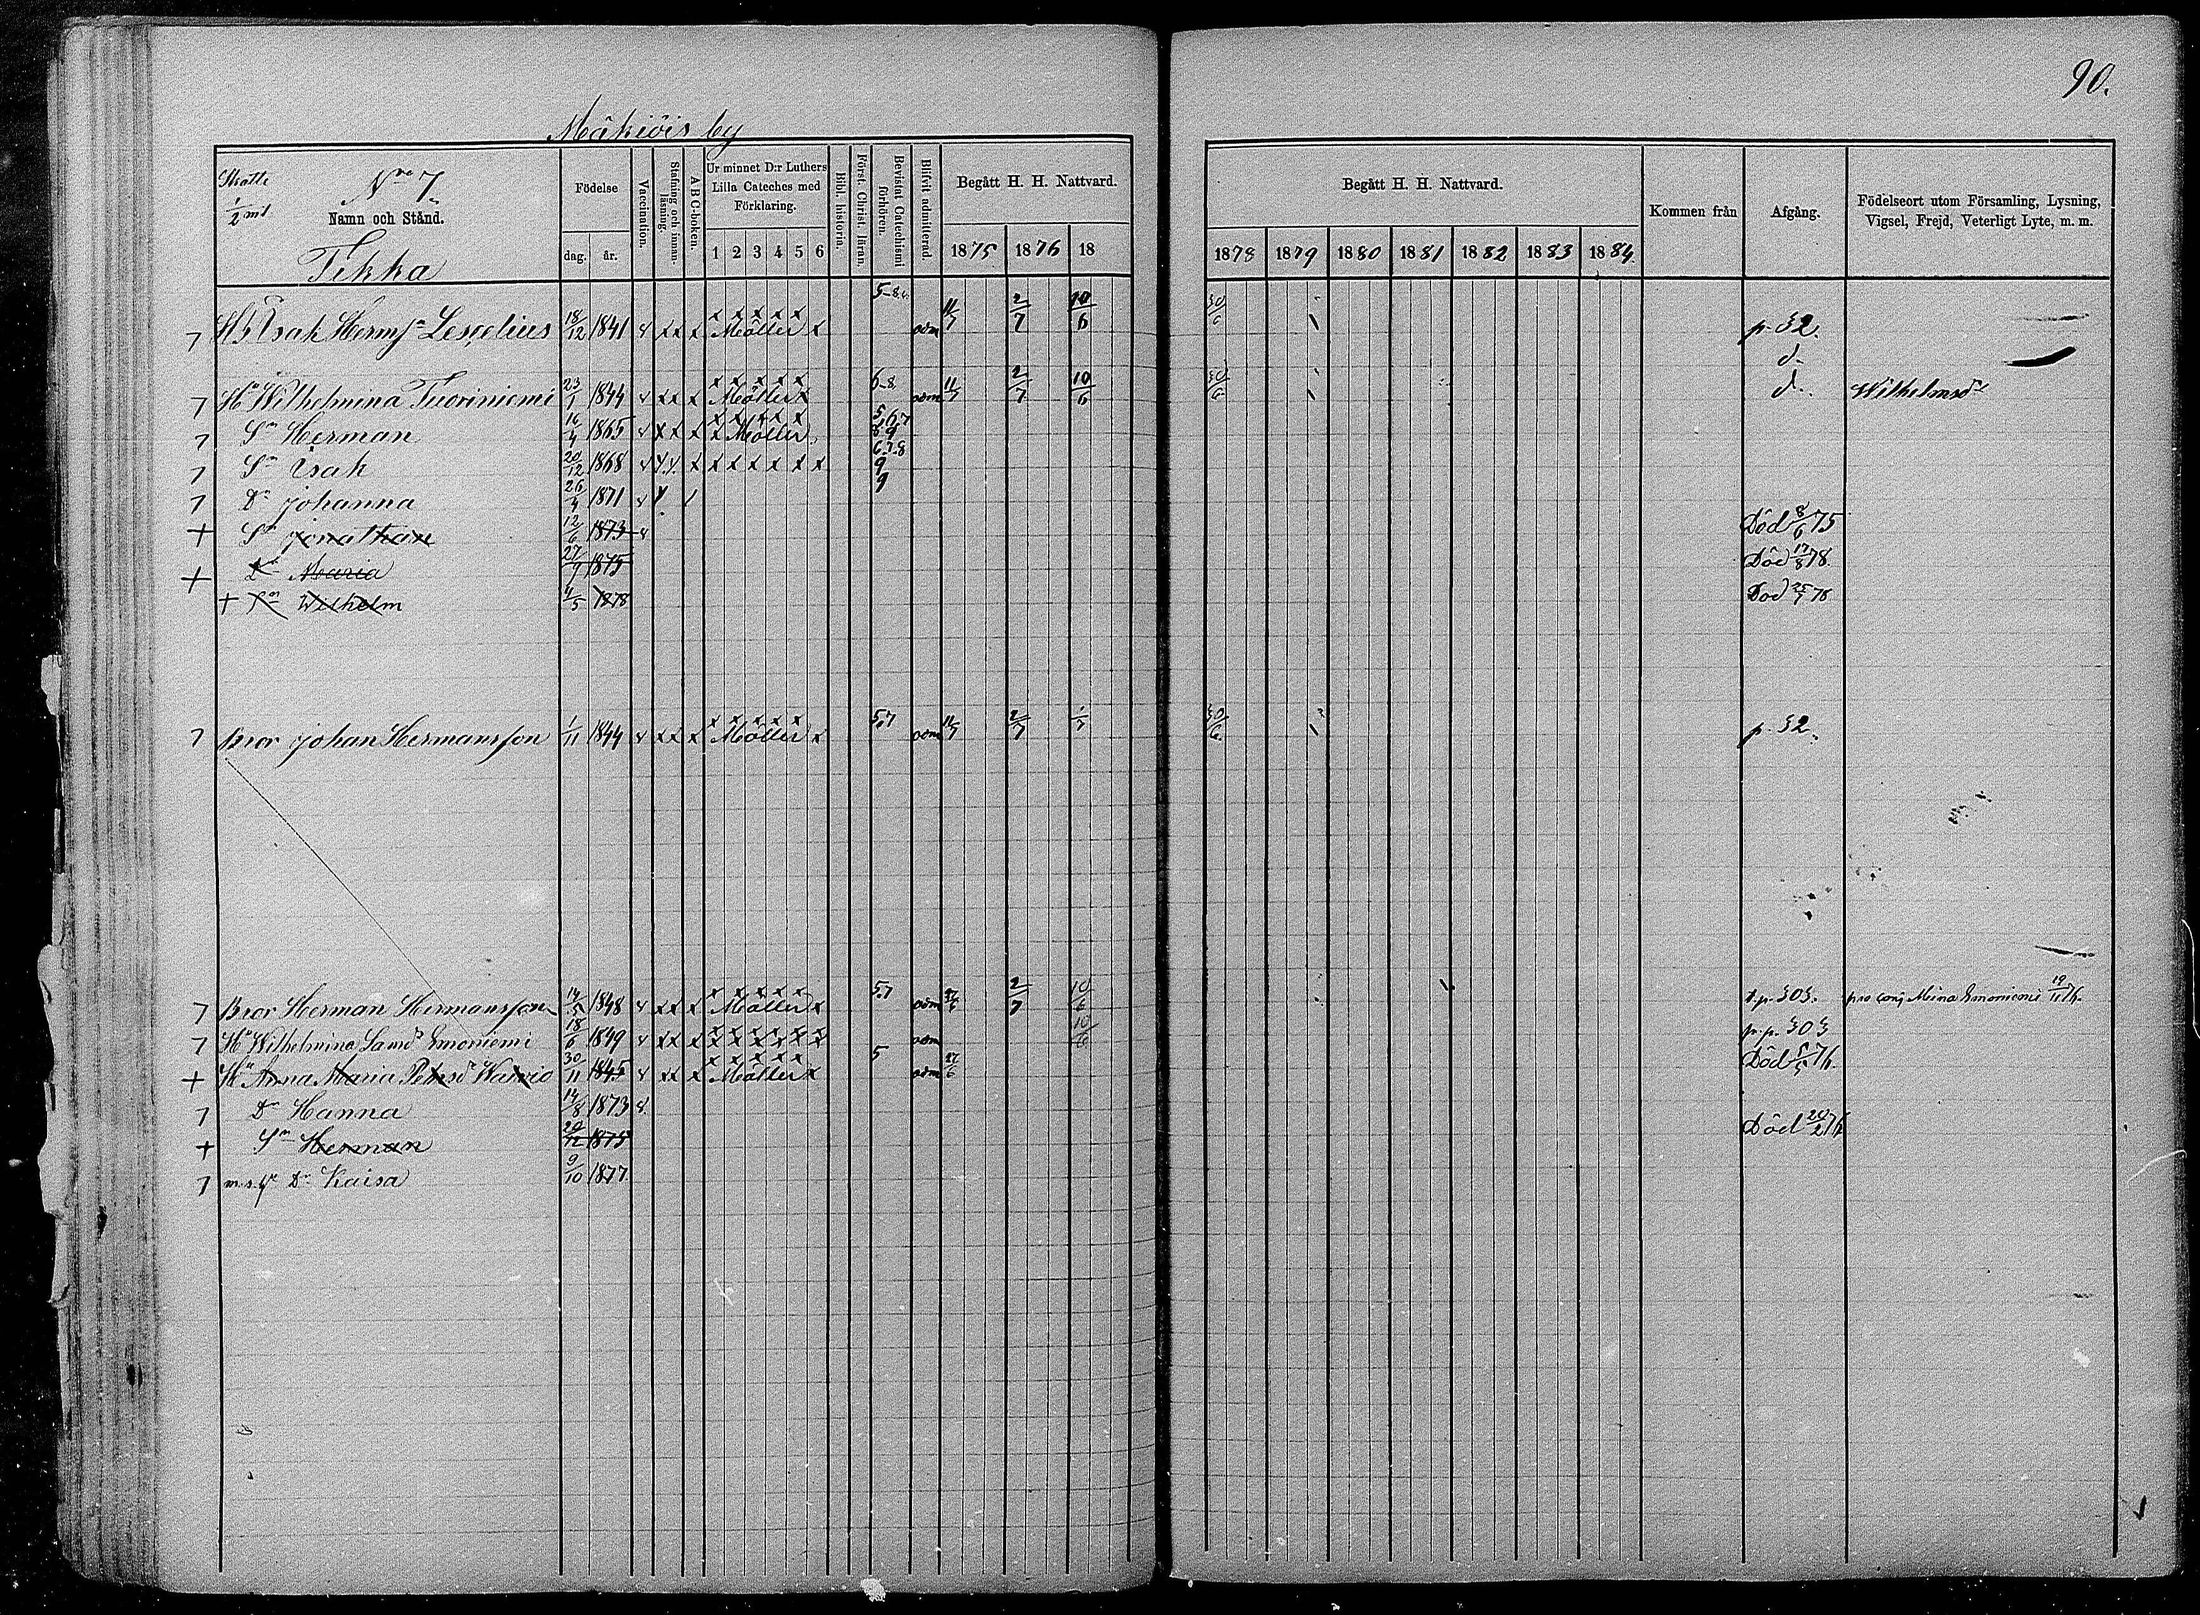 90.
Mäkiöis by
Skatte N:ro 7.
1/2 ml
Namn och Stånd.
Tikka
Födelse
dag. år.
Vaccination.
Stafning och innan-läsning.
A B C-boken.
Ur minnet D:r Luthers Lilla Cateches med Förklaring.
1 2 3 4 5 6
Bibl. historia.
Först. Christ. läran.
Bevistat Catechismi förhören.
Blifvit admitterad
Begått H. H. Nattvard.
1875 1876 18
Begått H. H. Nattvard.
1878 1879 1880 1881 1882 1883 1884
Kommen från
Afgång.
Födelseort utom Församling, Lysning, Vigsel, Frejd, Veterligt Lyte, m. m.
7 Isak Herms:n 18/12 1841 x xx x x x x x x Möller x 5-8 adm 11/7 2/7 10/6 30/6 p. 32.
d.
7 Hu Wilhelmina Tuoriniemi 23/1 1844 x xx x x x x x x Möller x 6-8 adm 11/7 2/7 10/6 30/6 d. Wilhelmsd:r
7 Sn Herman 16/4 1865 x xx x x x x x x Möller 5 6 7 8 9
7 Sn Isak 20/12 1868 x x x x x x x x x x 6.7.8 9
7 Dr Johanna 26/4 1871 x 9
+ Sn Jonathan 12/6 1873 Död 8/6 75
+ Dr Maria 27/7 1875 Död 17/8 78.
+ Sn Wilhelm 4/5 1878 Död 78
7 Bror Johan Hermansson 1/11 1844 x xx x x x x x x Möller x 5.7 adm 11/7 2/7 30/6 p. 32.
7 Bror Herman Hermansson 14/5 1848 x xx x x x x x x Möller x 5.7 adm 27/6 2/7 10/6 t.p. 303. pro conj. Mina 19/11 76.
7 Hu Wilhelmina Samd:r 18/6 1849 x xx x x x x x x x adm 10/6 p. 303
+ Hu Anna Maria Petersd:r 30/11 1845 x xx x x x x x x Möller x 5 adm 27/6 Död 76.
7 Dr Hanna 14/8 1873 x
+ Sn Herman 29/12 1875 Död 76
7 Dr Kaisa 9/10 1877